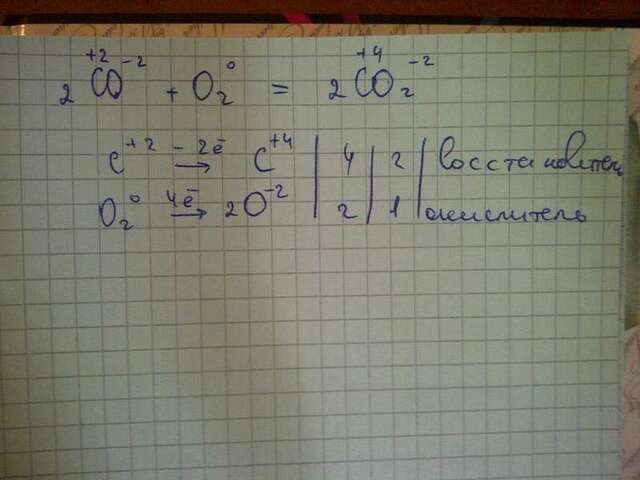 2 C⁺²O⁻² + O₂⁰ = 2 C⁺⁴O₂⁻²
C⁺² –2ē → C⁺⁴ | 4 | 2 | восстановитель
O₂⁰ 4ē → 2O⁻² | 2 | 1 | окислитель